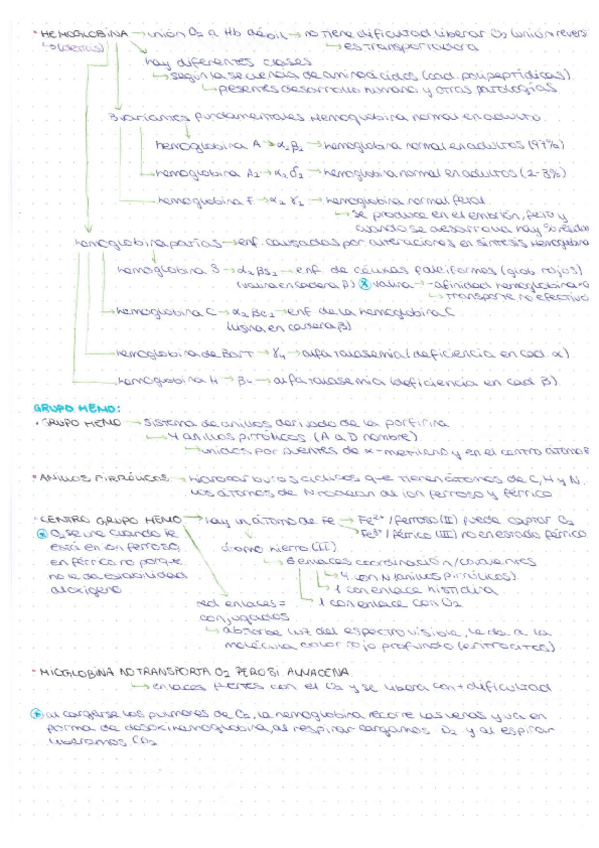 · HEMOGLOBINA → unión O₂ a Hb débil → no tiene dificultad liberar O₂ (unión revers
↳ (detrás) ↳ es transportadora
hay diferentes clases
↳ según la secuencia de aminoácidos (cad. polipeptídicas)
↳ presentes desarrollo humano y otras patologías
3 variantes fundamentales Hemoglobina normal en adulto.
hemoglobina A → α₂β₂ → hemoglobina normal en adultos (97%)
hemoglobina A₂ → α₂δ₂ → hemoglobina normal en adultos (2-3%)
hemoglobina F → α₂γ₂ → hemoglobina normal fetal
↳ se produce en el embrión, feto y
cuando se desarrolla hay
hemoglobinopatías → enf. causadas por alteraciones en síntesis Hemoglobina
hemoglobina S → α₂βs₂ → enf. de células falciformes (glob. rojos)
(valina en cadena β) ⊛ valina → -afinidad hemoglobina-O
↳ transporte no efectivo
hemoglobina C → α₂βc₂ → enf de la hemoglobina C
(lisina en cadena β)
hemoglobina de Bart → γ₄ → alfa talasemia (deficiencia en cad. α)
hemoglobina H → β₄ → alfa talasemia (deficiencia en cad β)
GRUPO HEMO:
· GRUPO HEMO → sistema de anillos derivado de la porfirina
↳ 4 anillos pirrólicos (A a D nombre)
↳ unidos por puentes de α-metileno y en el centro átomo F
· ANILLOS PIRRÓLICOS → hidrocarburos cíclicos que tienen átomos de C, H y N.
Los átomos de N rodean al ion ferroso y férrico
· CENTRO GRUPO HEMO → hay un átomo de Fe → Fe²⁺/ferroso (II) puede captar O₂
⊛ O₂ se une cuando Fe Fe³⁺/férrico (III) no en estado férrico
está en ión ferroso, átomo hierro (II)
en férrico no porque ↳ 6 enlaces coordinación/covalentes
no le da estabilidad ↳ 4 con N (anillos pirrólicos)
al oxígeno ↳ 1 con enlace histidina
red enlaces = ↳ 1 con enlace con O₂
conjugados
↳ absorbe luz del espectro visible, le da a la
molécula color rojo profundo (eritrocitos)
· MIOGLOBINA NO TRANSPORTA O₂ PERO SI ALMACENA
↳ enlaces fuertes con el O₂ y se libera con + dificultad
⊛ al cargarse los pulmones de O₂, la hemoglobina recorre las venas y va en
forma de desoxihemoglobina, al respirar cargamos O₂ y al espirar
liberamos CO₂